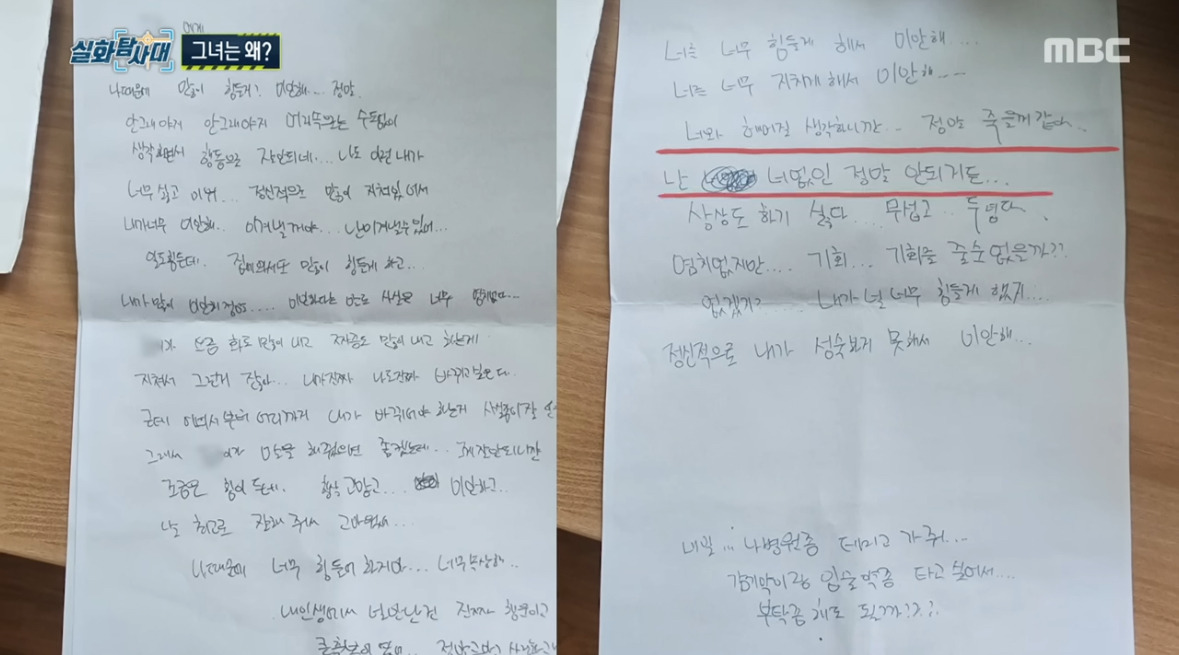 실화탐사대
그녀는 왜?
MBC
나때문에 많이 힘들지? 미안해.... 정말
안그래야지 안그래야지 머리속으로는 수천번
생각하면서 행동으로 잘안되네... 나도 이런 내가
너무 싫고 미워... 정신적으로 많이 지쳐있어서
내가너무 미안해.. 이겨낼꺼야... 난이겨낼수있어...
일도힘든데. 집에와서도 많이 힘들게 하고...
내가많이 미안해 정말..... 미안하다는 말도 사실은 너무
요즘 화도 많이 내고 짜증도 많이 내고 하는게
지쳐서 그런거 잖아... 내가진짜 나도진짜 바뀌고싶은데
근데 어디서부터 어디까지 내가 바뀌어야 하는지 사실
그래서 말을 해줬으면 좋겠는데...
조금은 힘이 드네. 항상 고맙고... 미안하고..
날 최고로 잘해 주어서 고마워...
나때문에 너무 힘들어 하지마... 너무속상해..
내인생에서 널만난건 진짜 행운이고
너를 너무 힘들게 해서 미안해...
너를 너무 지치게 해서 미안해...
너와 헤어질 생각하니깐... 정말 죽을꺼 같아.
난 너없인 정말 안되거든...
상상도 하기 싫다... 무섭고.. 두렵다.
염치없지만.... 기회... 기회를 줄순 없을까??
없겠지? 내가 널 너무 힘들게 했지....
정신적으로 내가 성숙하지 못해서 미안해...
내일... 나병원좀 데리고 가줘...
감기약이랑 입술약좀 타고 싶어서....
부탁좀 해도 될까??